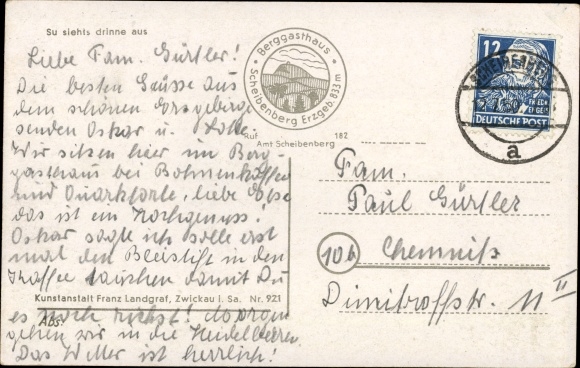 Su siehts drinne aus
Liebe Fam. Gürtler!
Die besten Grüsse aus
dem schönen Erzgebirge
senden Oskar u. Lotte.
Wir sitzen hier im Berg-
gasthaus bei Bohnenkaffee
und Quarktorte, liebe Else
das ist ein Hochgenuss!
Oskar sagte ich solle erst
mal den Bleistift in den
Kaffee tauchen damit Du
Kunstanstalt Franz Landgraf, Zwickau i. Sa. Nr. 921
es noch riechst!
Abs.
gehen wir in die Heidelbeeren.
Das Wetter ist herrlich!
Berggasthaus
Scheibenberg Erzgeb. 835 m
Ruf 182
Amt Scheibenberg
12
DEUTSCHE POST
SCHEIBENBERG
a
Fam.
Paul Gürtler
10b Chemnitz
Dimitroffstr. 11 II